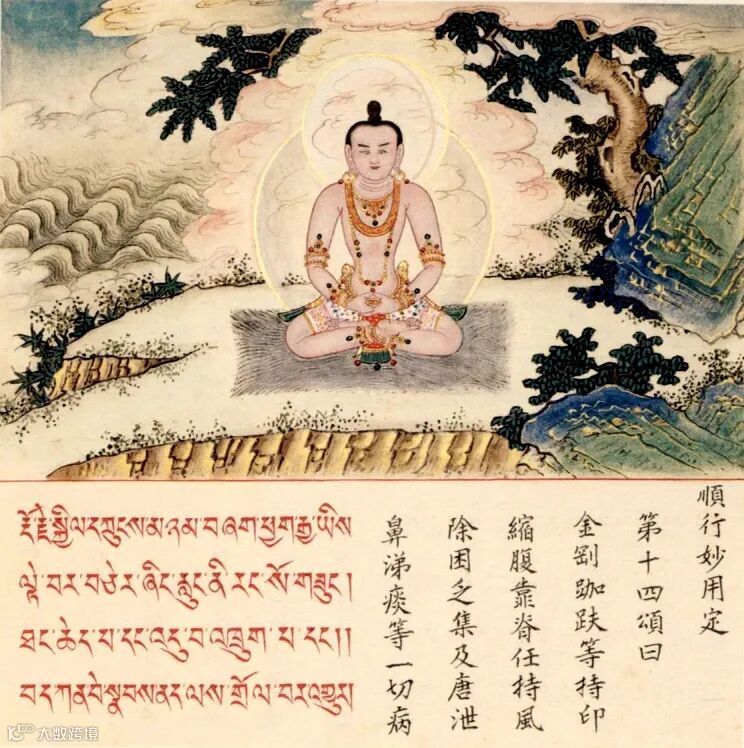 順行妙用定
第十四頌曰
金剛跏趺等持印
縮腹靠脊任持風
除困乏集及唐泄
鼻涕痰等一切病
རྡོ་རྗེ་སྐྱིལ་དཀྲུངས་མཉམ་བཞག་ཕྱག་རྒྱ་ཡིས
ལྟེ་བར་བཙེར་ཞིང་རླུང་ནི་རང་སོ་གཟུང།
ཐང་ཆེད་པ་དང་འདུ་བ་འཁྲུག་པ་དང།།
བད་ཀན་བེ་སྣབས་ནད་ལས་གྲོལ་བར་འགྱུར།
大数跨境